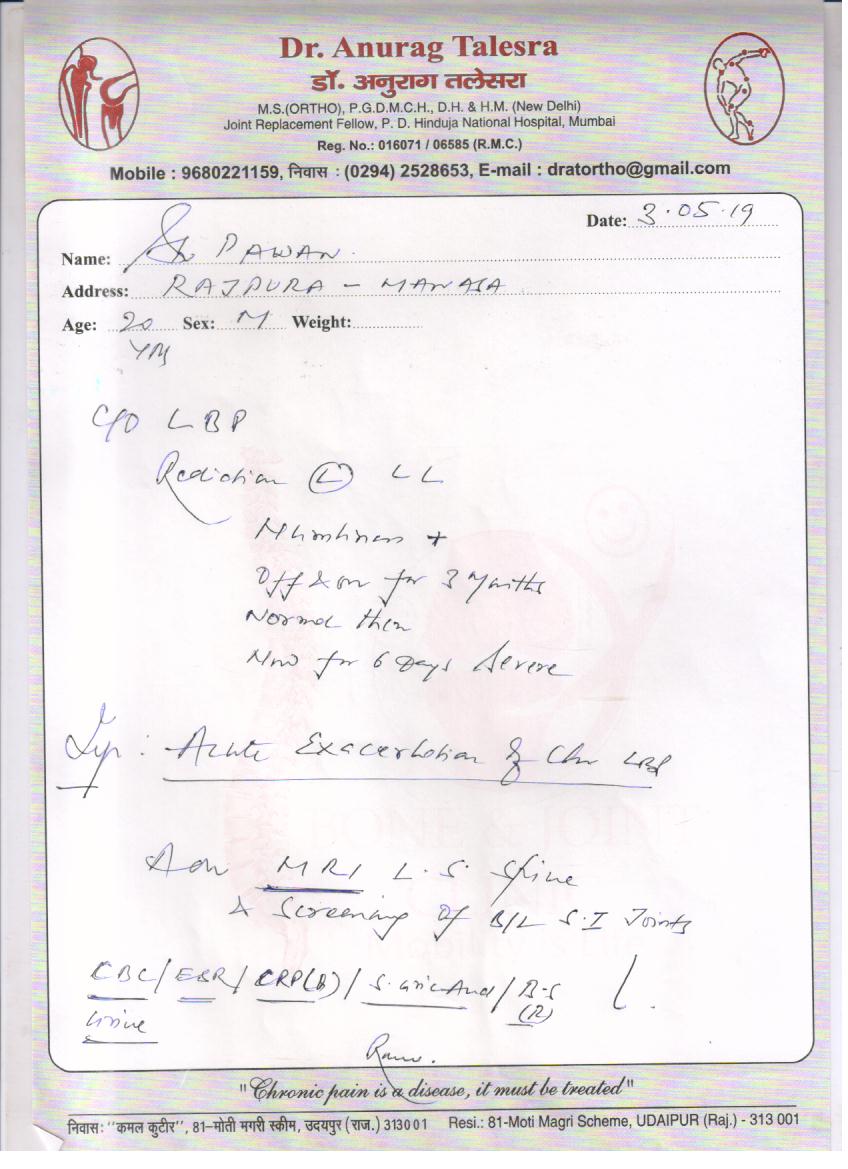 Dr. Anurag Talesra
डॉ. अनुराग तलेसरा
M.S.(ORTHO), P.G.D.M.C.H., D.H. & H.M. (New Delhi)
Joint Replacement Fellow, P. D. Hinduja National Hospital, Mumbai
Reg. No.: 016071 / 06585 (R.M.C.)
Mobile : 9680221159, निवास : (0294) 2528653, E-mail : dratortho@gmail.com
Date: 3.05.19
Name: PAWAN
Address: RAJPURA - MANASA
Age: 20 Sex: M Weight:
C/O LBP
Radiation (L) LL
+
Off & on for 3 Months
Normal then
Now for 6 Days Severe
Imp: Acute Exacerbation of Chr LBP
Adv MRI L.S. Spine
& Screening of B/L S.I Joints
CBC/ESR/CRP(B)/S. Uric Acid/B-S
(R)
Urine
BONE & JOINT
"Chronic pain is a disease, it must be treated"
निवास: "कमल कुटीर", 81-मोती मगरी स्कीम, उदयपुर (राज.) 313001 Resi.: 81-Moti Magri Scheme, UDAIPUR (Raj.) - 313 001